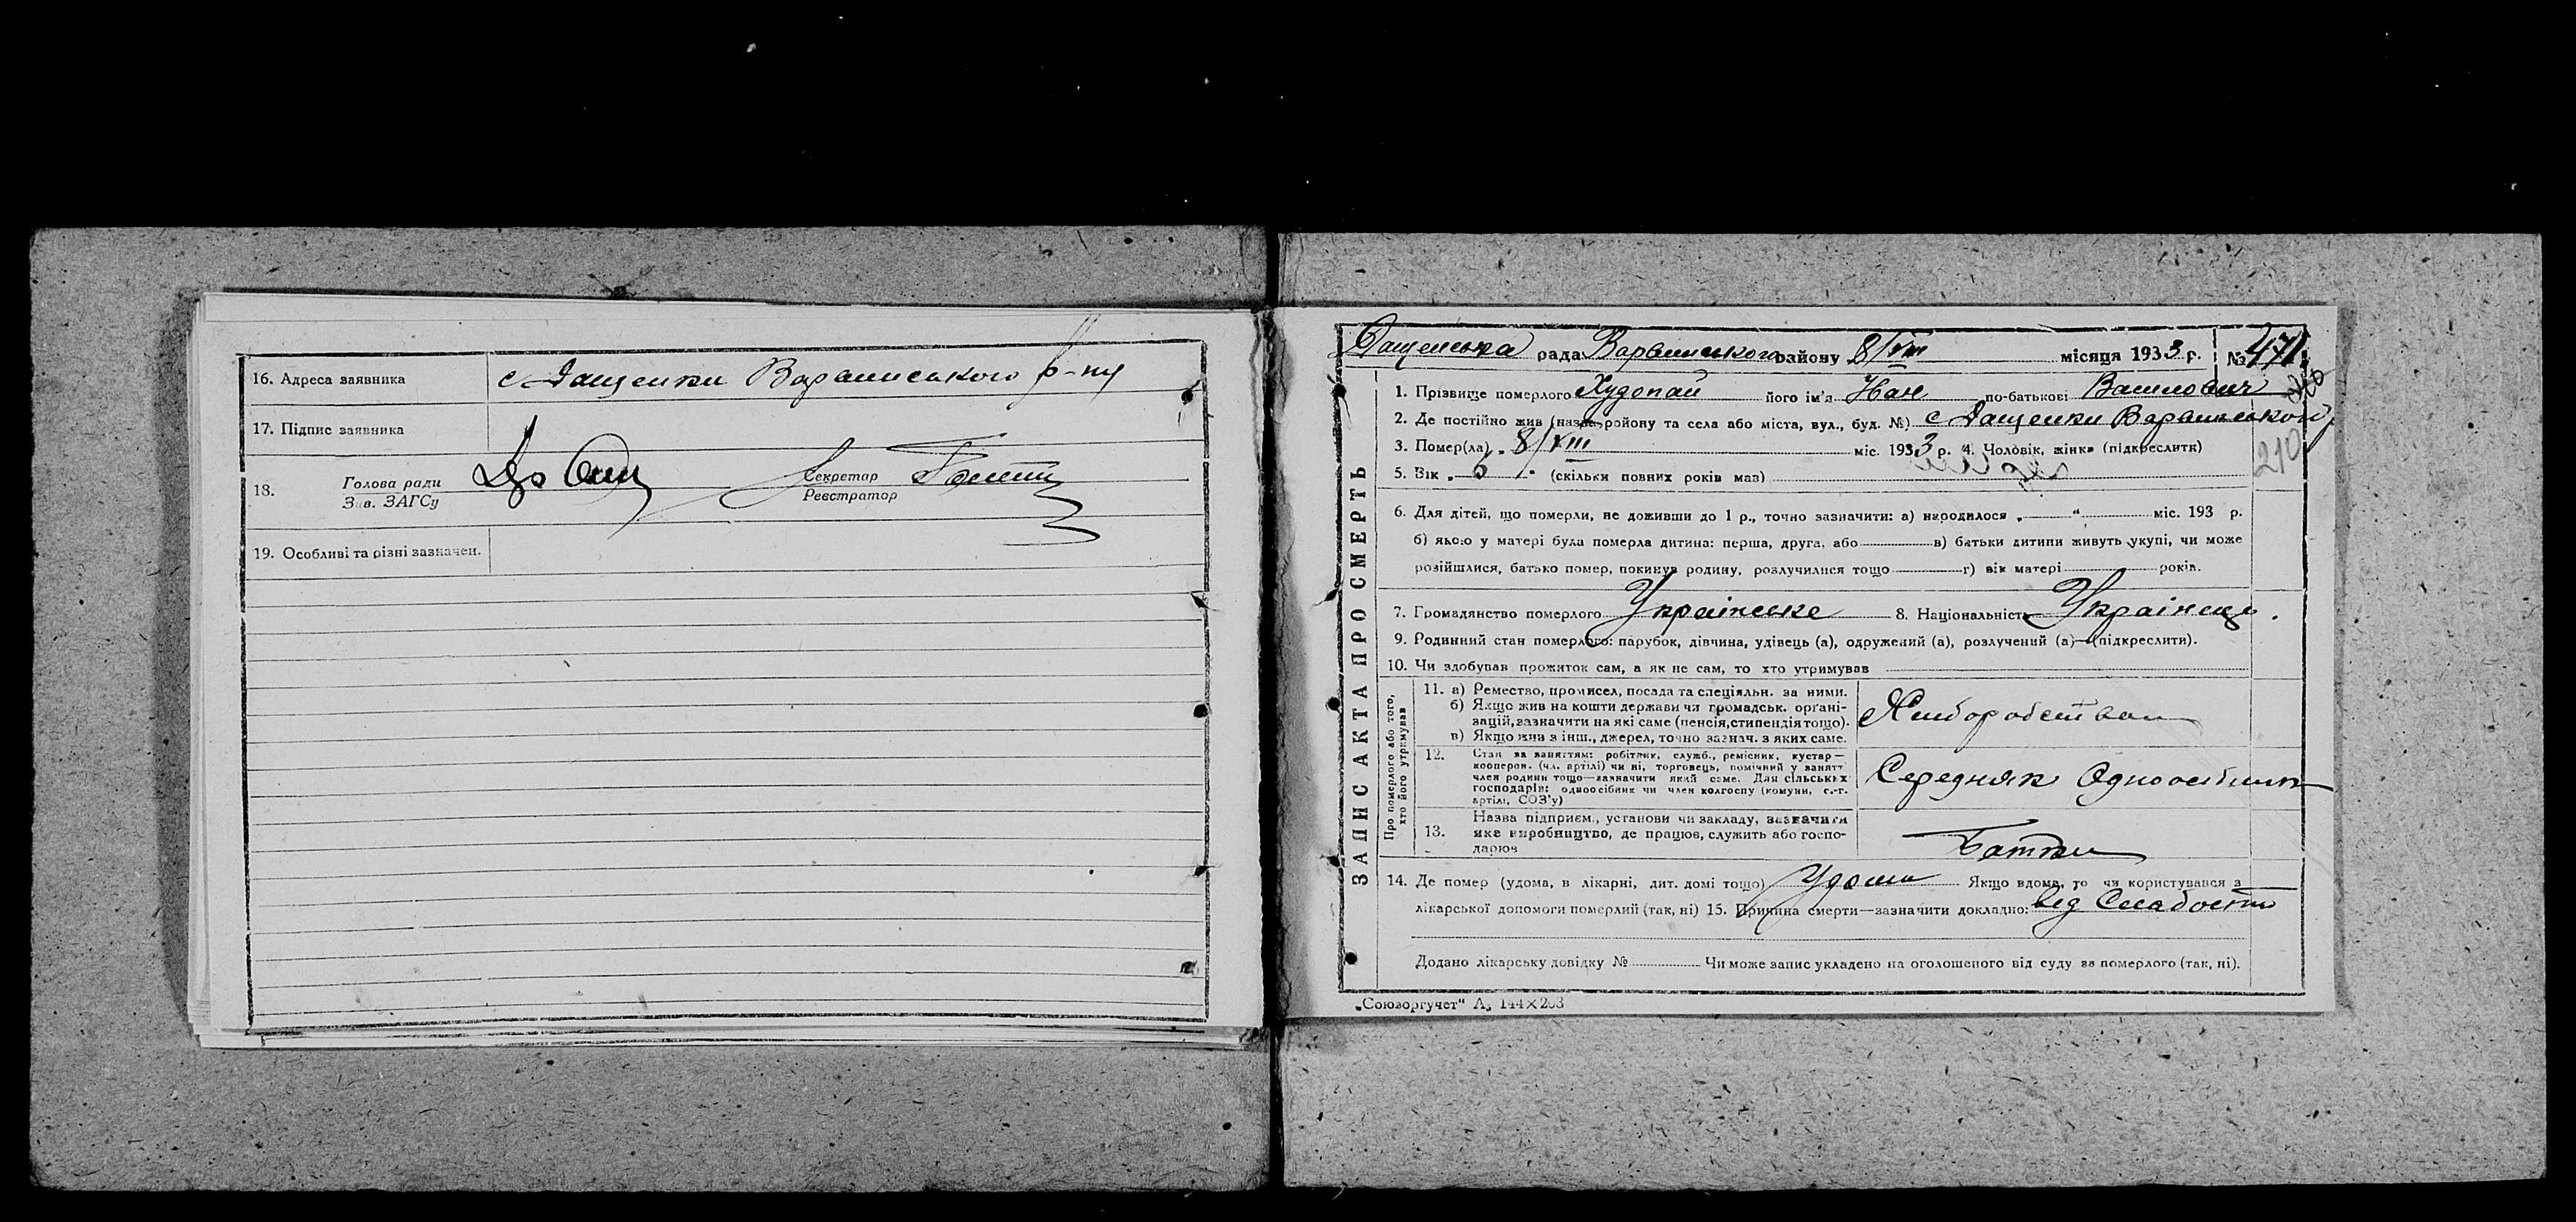 16. Адреса заявника с Дащенки Варвинського р-ну
17. Підпис заявника
18. Голова ради
Зав. ЗАГСу
Секретар
Реєстратор
19. Особливі та різні зазначен.
ЗАПИС АКТА ПРО СМЕРТЬ
Дащенська рада Варвинського району 8/VIII місяця 1933 р. № 471
1. Прізвище померлого Худопай його ім'я Іван по-батькові Василович
2. Де постійно жив (назва району та села або міста, вул., буд. №) с Дащенки Варвинськой
210
3. Помер(ла) „ 8/VIII міс. 1933 р. 4. Чоловік, жінка (підкреслити)
5. Вік „ (скільки повних років мав)
6. Для дітей, що померли, не доживши до 1 р., точно зазначити: а) народилося „ “ міс. 193 р.
б) якою у матері була померла дитина: перша, друга, або в) батьки дитини живуть укупі, чи може
розійшлися, батько помер, покинув родину, розлучилися тощо г) вік матері років.
7. Громадянство померлого Українське 8. Національність Українець.
9. Родинний стан померлого: парубок, дівчина, удівець (а), одружений (а), розлучений (а)—(підкреслити).
10. Чи здобував прожиток сам, а як не сам, то хто утримував
Про померлого або того, хто його утримував
11. а) Ремество, промисел, посада та спеціяльн. за ними.
б) Якщо жив на кошти держави чи громадськ. органі-
зацій, зазначити на які саме (пенсія, стипендія тощо).
в) Якщо жив з інш., джерел, точно зазнач. з яких саме.
Хлиборобством
12. Стан за заняттям: робітник, служб., ремісник, кустар—
кооперов. (чл. артілі) чи ні, торговець, помічний у занятт
член родини тощо—зазначити який саме. Для сільських
господарів: одноосібник чи член колгоспу (комуни, с.-г.
артілі, СОЗ'у)
Середняк Одноосібник
13. Назва підприєм., установи чи закладу, зазначити
яке виробництво, де працює, служить або госпо-
дарює
Батьки
14. Де помер (удома, в лікарні, дит. домі тощо) Удома Якщо вдома, то чи користувався з
лікарської допомоги померлий (так, ні) 15. Причина смерти—зазначити докладно: від Слабости
Додано лікарську довідку № Чи може запис укладено на оголошеного від суду за померлого (так, ні).
„Союзоргучет“ А₅ 144×203